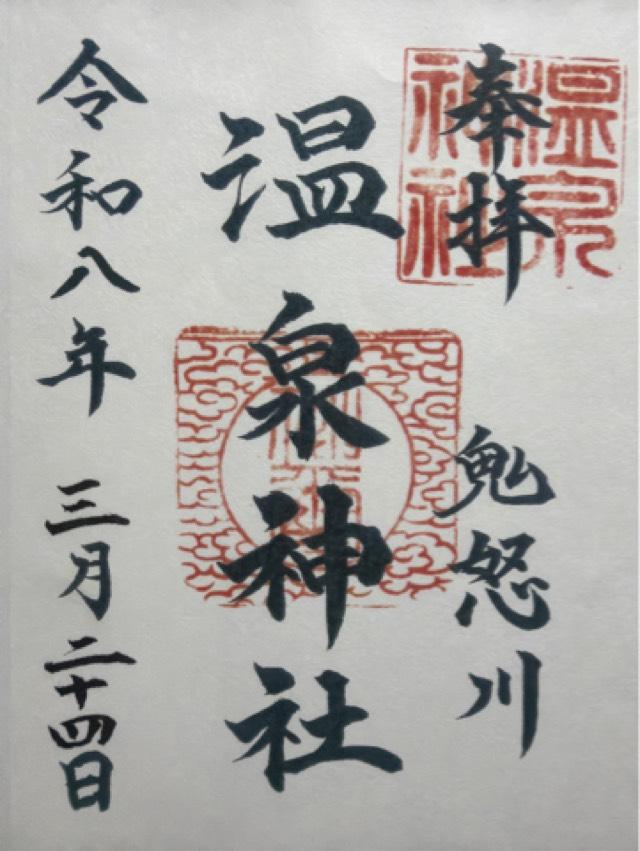 奉拝
鬼怒川
温泉神社
令和八年 三月二十四日
温泉
神社